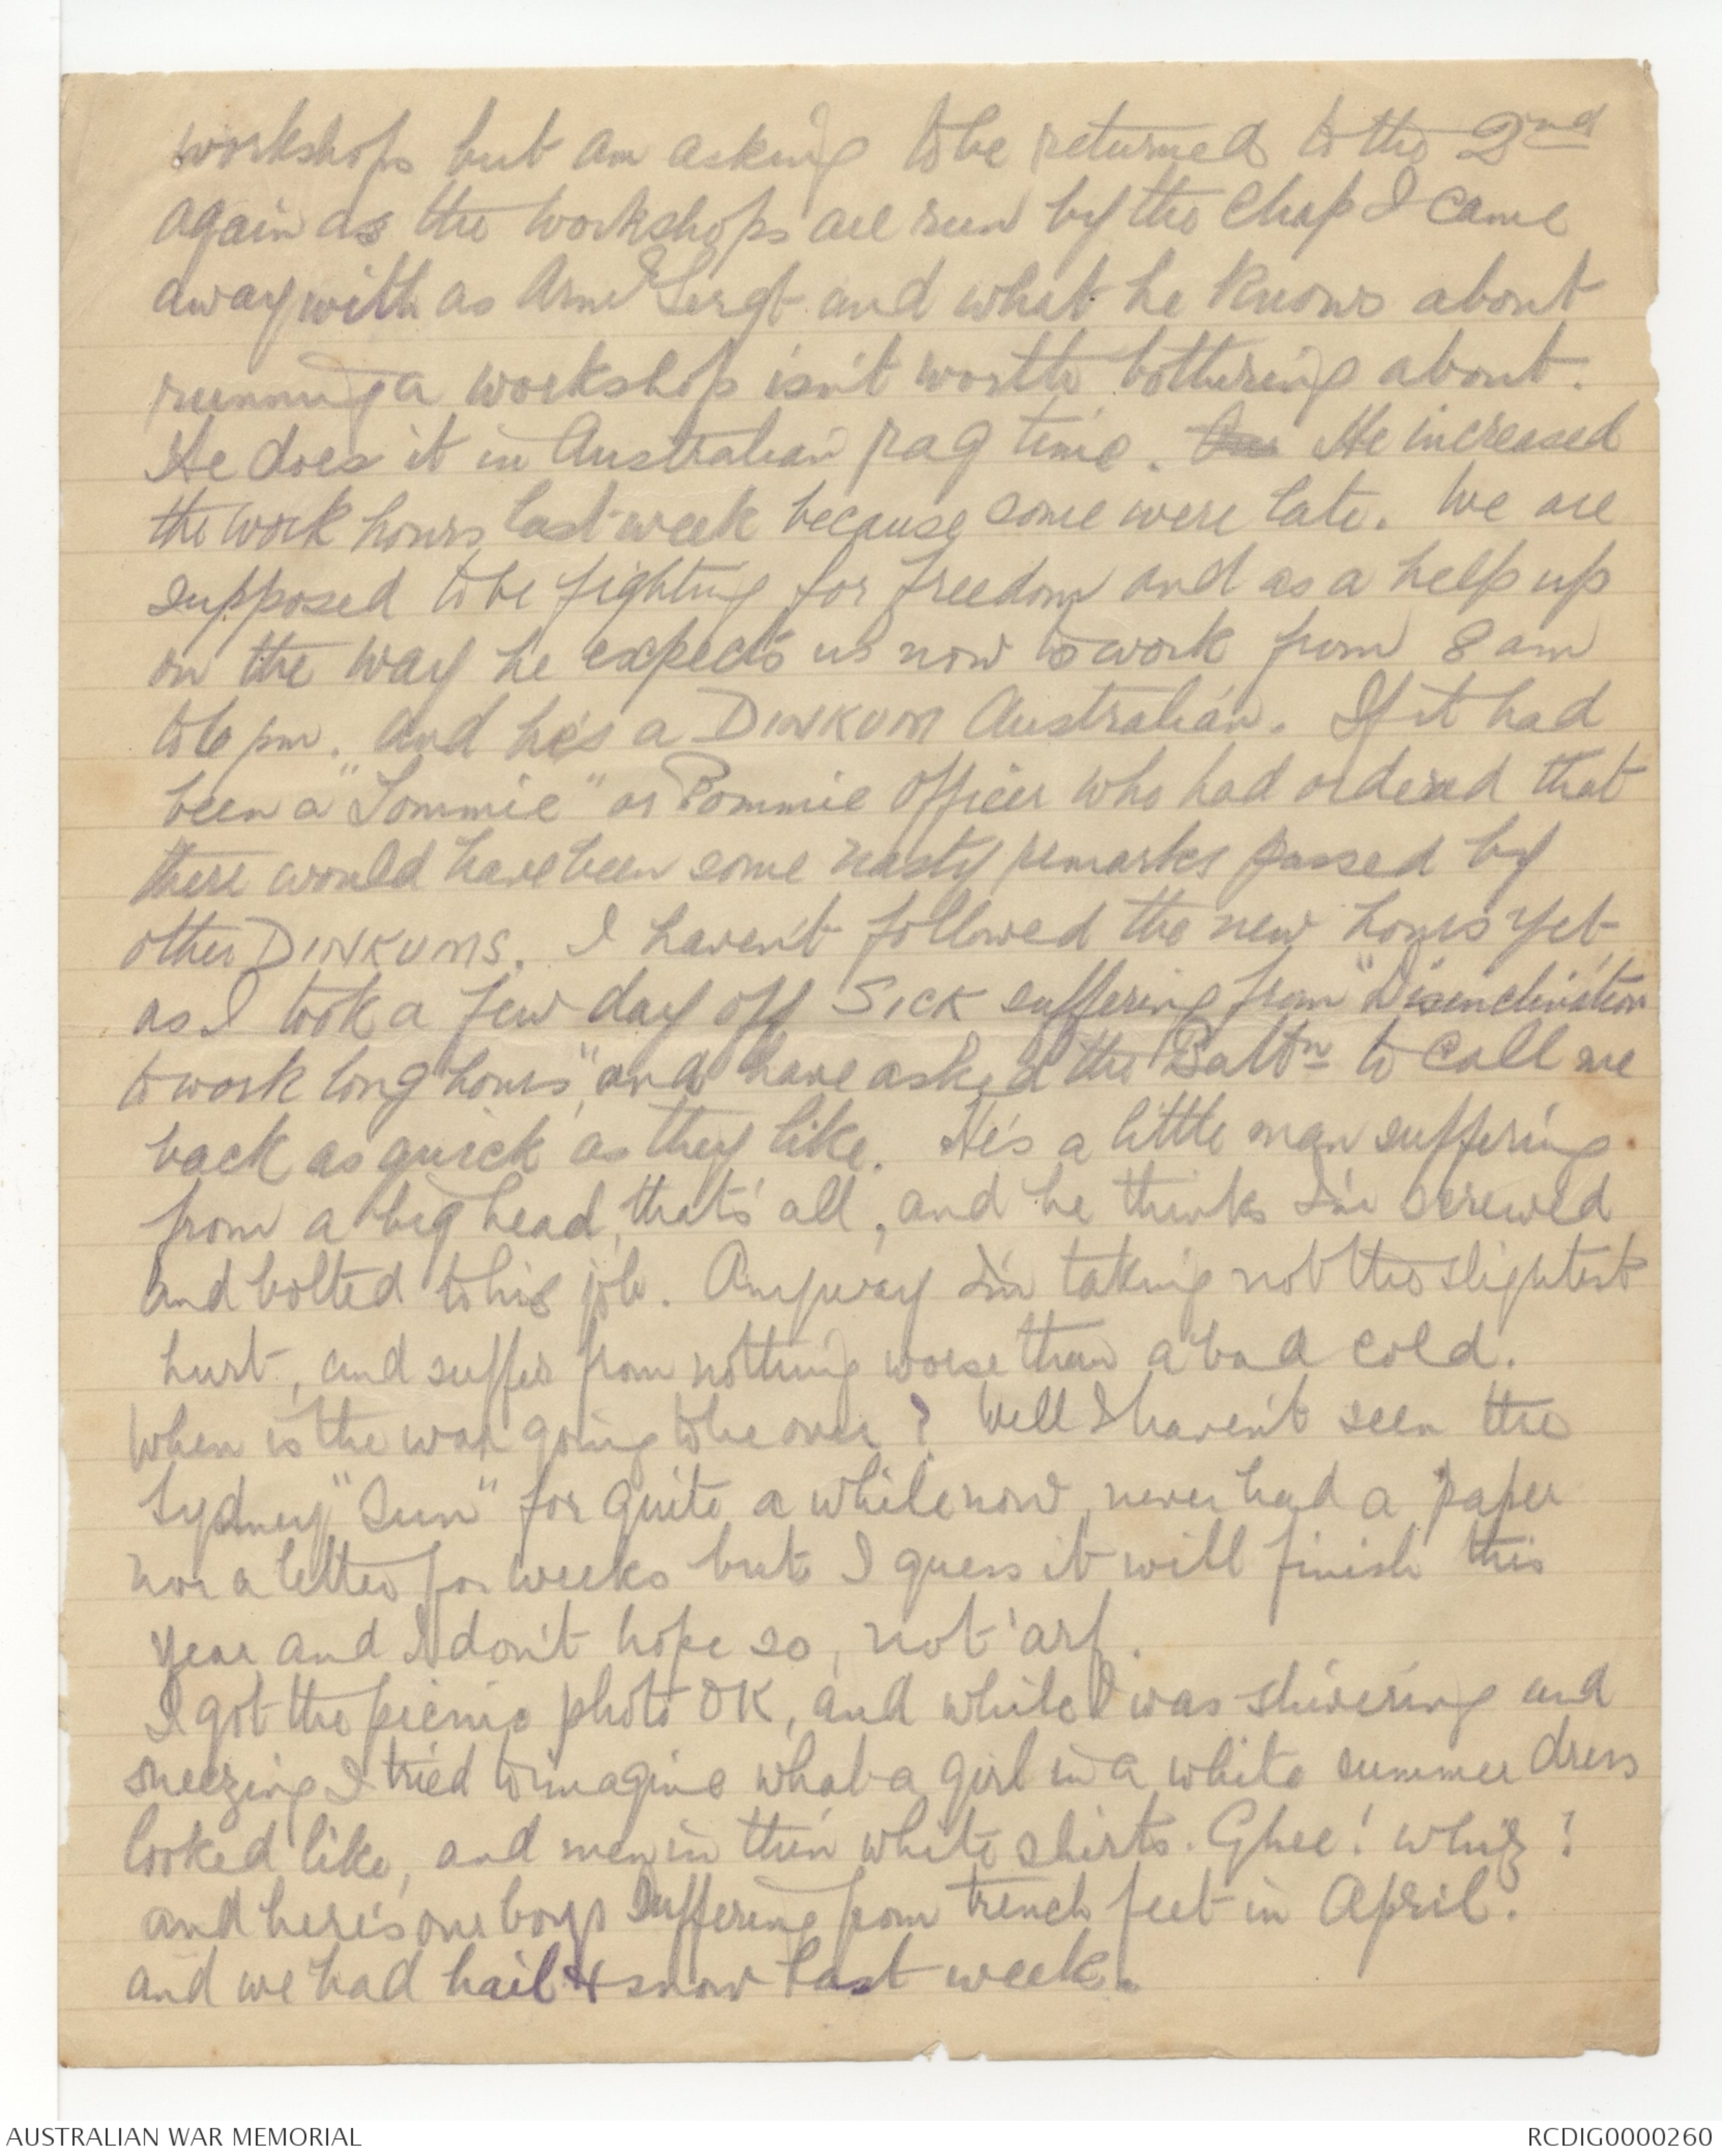 workshops but am asking to be returned to the 2nd
again as the workshops are run by the chap I came
away with as Arm Sergt and what he knows about
running a workshop isn't worth bothering about.
He does it in Australian rag time. He increased
the work hours last week because some were late. We are
supposed to be fighting for freedom and as a help up
on the way he expects us now to work from 8 am
to 6 pm. And he's a DINKUM Australian. If it had
been a "Tommie" or Pommie Officer who had ordered that
there would have been some nasty remarks passed by
other DINKUMS. I haven't followed the new hours yet
as I took a few day off SICK suffering from "Disinclination
to work long hours", and have asked the Battn to call me
back as quick as they like. He's a little man suffering
from a big head, that's all, and he thinks I'm screwed
and bolted to his job. Anyway I'm taking not the slightest
hurt, and suffer from nothing worse than a bad cold.
When is the war going to be over? Well I haven't seen the
Sydney "Sun" for quite a while now, never had a paper
nor a letter for weeks but I guess it will finish this
year and I don't hope so, not 'arf.
I got the picnic photo OK, and while I was shivering and
sneezing I tried to imagine what a girl in a white summer dress
looked like, and men in thin white shirts. Ghee! whiz!
and here's our boys suffering from trench feet in April.
and we had hail & snow last week.
AUSTRALIAN WAR MEMORIAL
RCDIG0000260